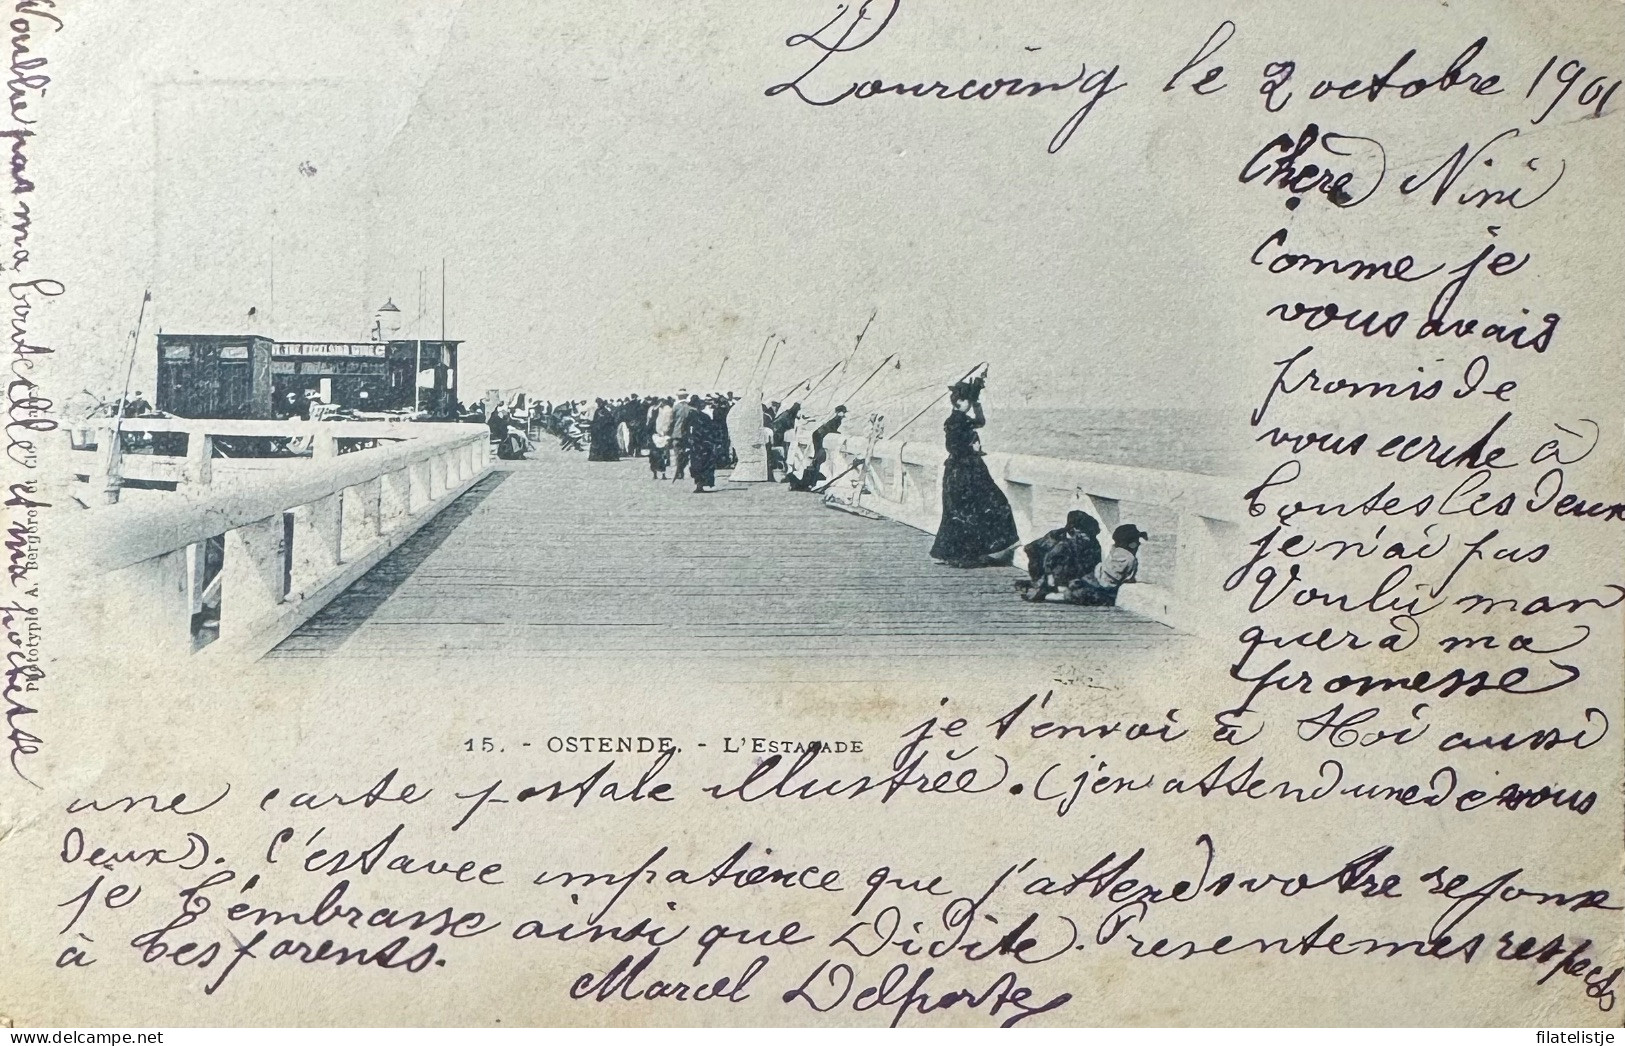 Tourcoing le 2 octobre 1901
Chère Nini
Comme je
vous avais
promis de
vous ecrire à
toutes les deux
je n'ai pas
voulu man
quer à ma
promesse
je t'envoi à toi aussi
une carte postale illustrée. (j'en attend une de vous
deux). C'est avec impatience que j'attends votre reponse
je t'embrasse ainsi que Didite. Presente mes respects
à tes parents.
Marcel Delporte
N'oublie pas ma bouteille et ma pochette
Phototypie A. Bergeret
15. - OSTENDE. - L'ESTACADE
filatelistje
delcampe.net